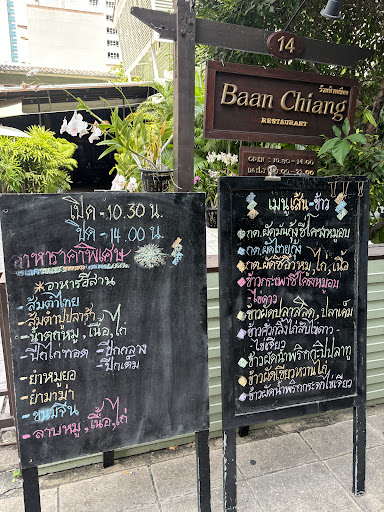 14
ร้านบ้านเชียง
Baan Chiang
RESTAURANT
เปิด - 10.30 น.
ปิด - 14.00 น.
อาหารราคาพิเศษ
*อาหารอีสาน
- ส้มตำไทย
- ส้มตำปูปลาร้า
- น้ำตกหมู, เนื้อ, ไก่
- ปีกไก่ทอด - ปีกกลาง
- ปีกเต็ม
- ยำหมูยอ
- ยำมาม่า
- ขนมจีน
- ลาบหมู, เนื้อ, ไก่
เมนูเส้น-ข้าว
กต.ผัดมันกุ้งซี่โครงหมูอบ
กต.ผัดไทยกุ้ง
กต.ผัดซีอิ๊วหมู, ไก่, เนื้อ
ข้าวกระเพราซี่โครงหมูอบ
- ไข่ดาว
ข้าวผัดปลาสลิด, ปูลาเค็ม
ข้าวคั่วกลิ้งไก่สับไข่ดาว
- ไข่เจียว
ข้าวผัดน้ำพริกกะปิปลาทู
ข้าวผัดเขียวหวานไก่
ข้าวผัดน้ำพริกกระดาไข่เจียว